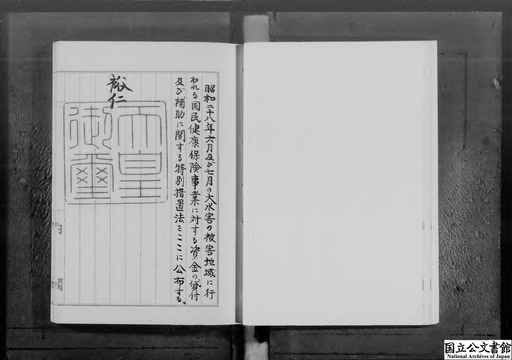 昭和二十八年六月及び七月の大水害の被害地域に行
われる国民健康保険事業に対する資金の貸付
及び補助に関する特別措置法をここに公布する。
裕仁
天皇
御璽
国立公文書館
National Archives of Japan